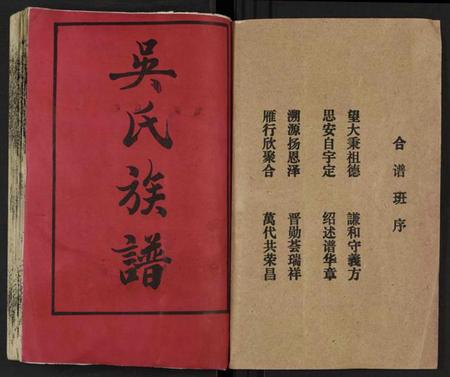 吳氏族譜
合谱班序
望大秉祖德 謙和守義方
思安自字定 绍述谱华章
溯源扬恩泽 晋勋荟瑞祥
雁行欣聚合 萬代共荣昌